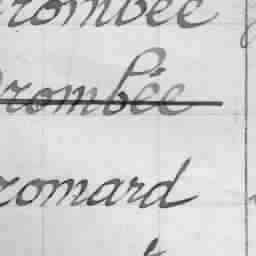 rombée
rombée
romard